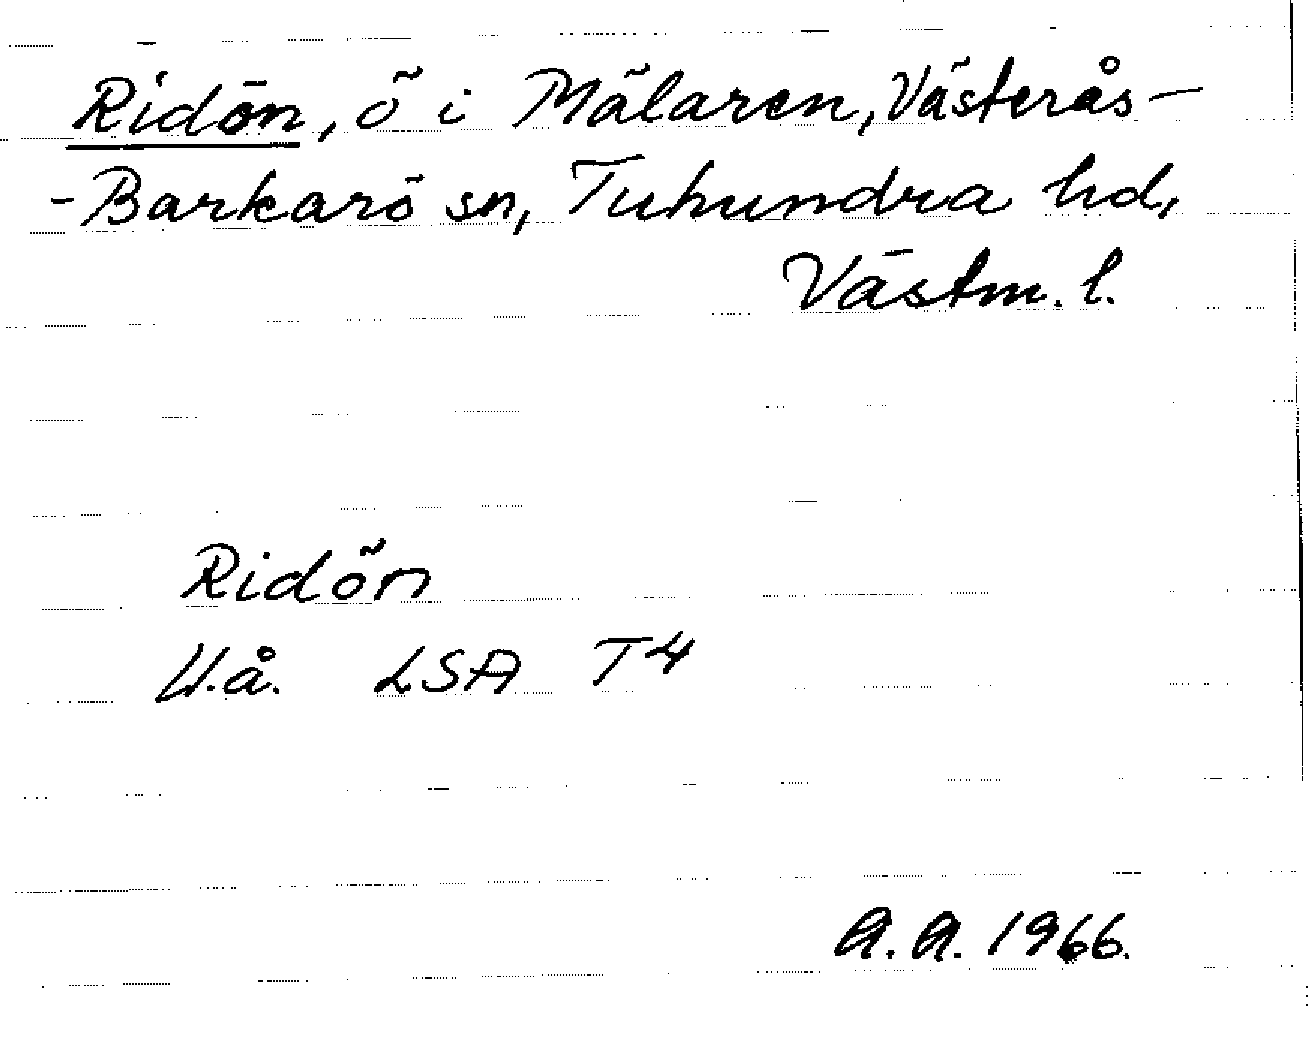 Ridön, ö i Mälaren, Västerås-
-Barkarö sn, Tuhundra hd,
Västm. l.
Ridön
U.å. LSA T4
A.A. 1966.